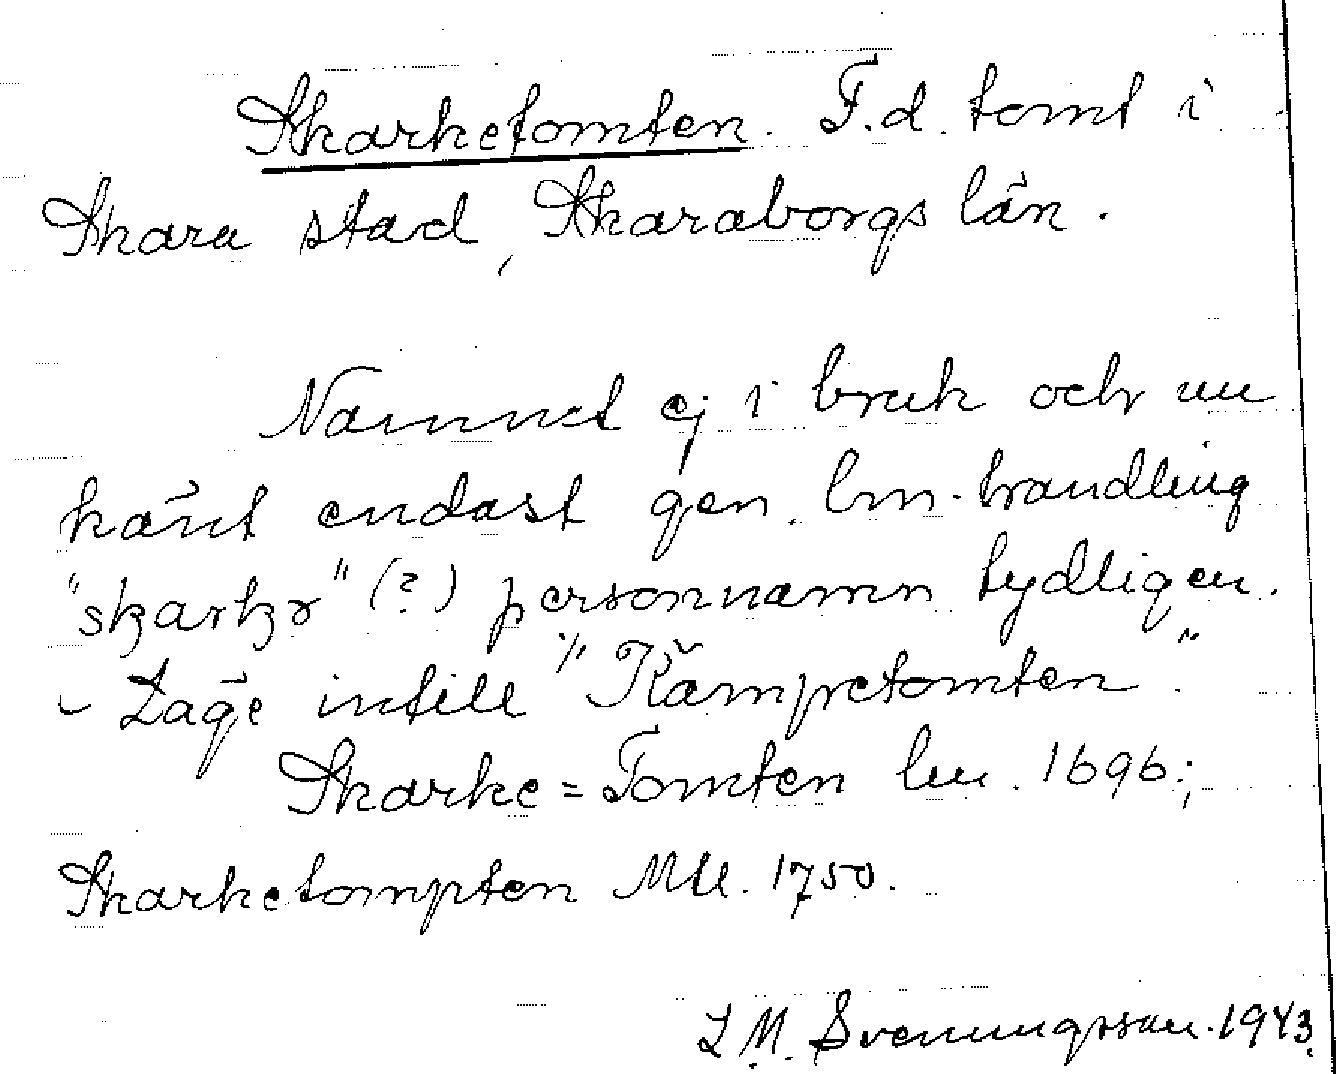 Skarketomten. F.d. tomt i
Skara stad, Skaraborgs län.
Namnet ej i bruk och nu
känt endast gen. lm-handling
"skarkr" (?) personnamn tydligen.
- Läge intill "Kämpetomten".
Skarke=Tomten lm. 1696;
Skarketompten Mtl. 1750.
L M. Svenungsson. 1943.